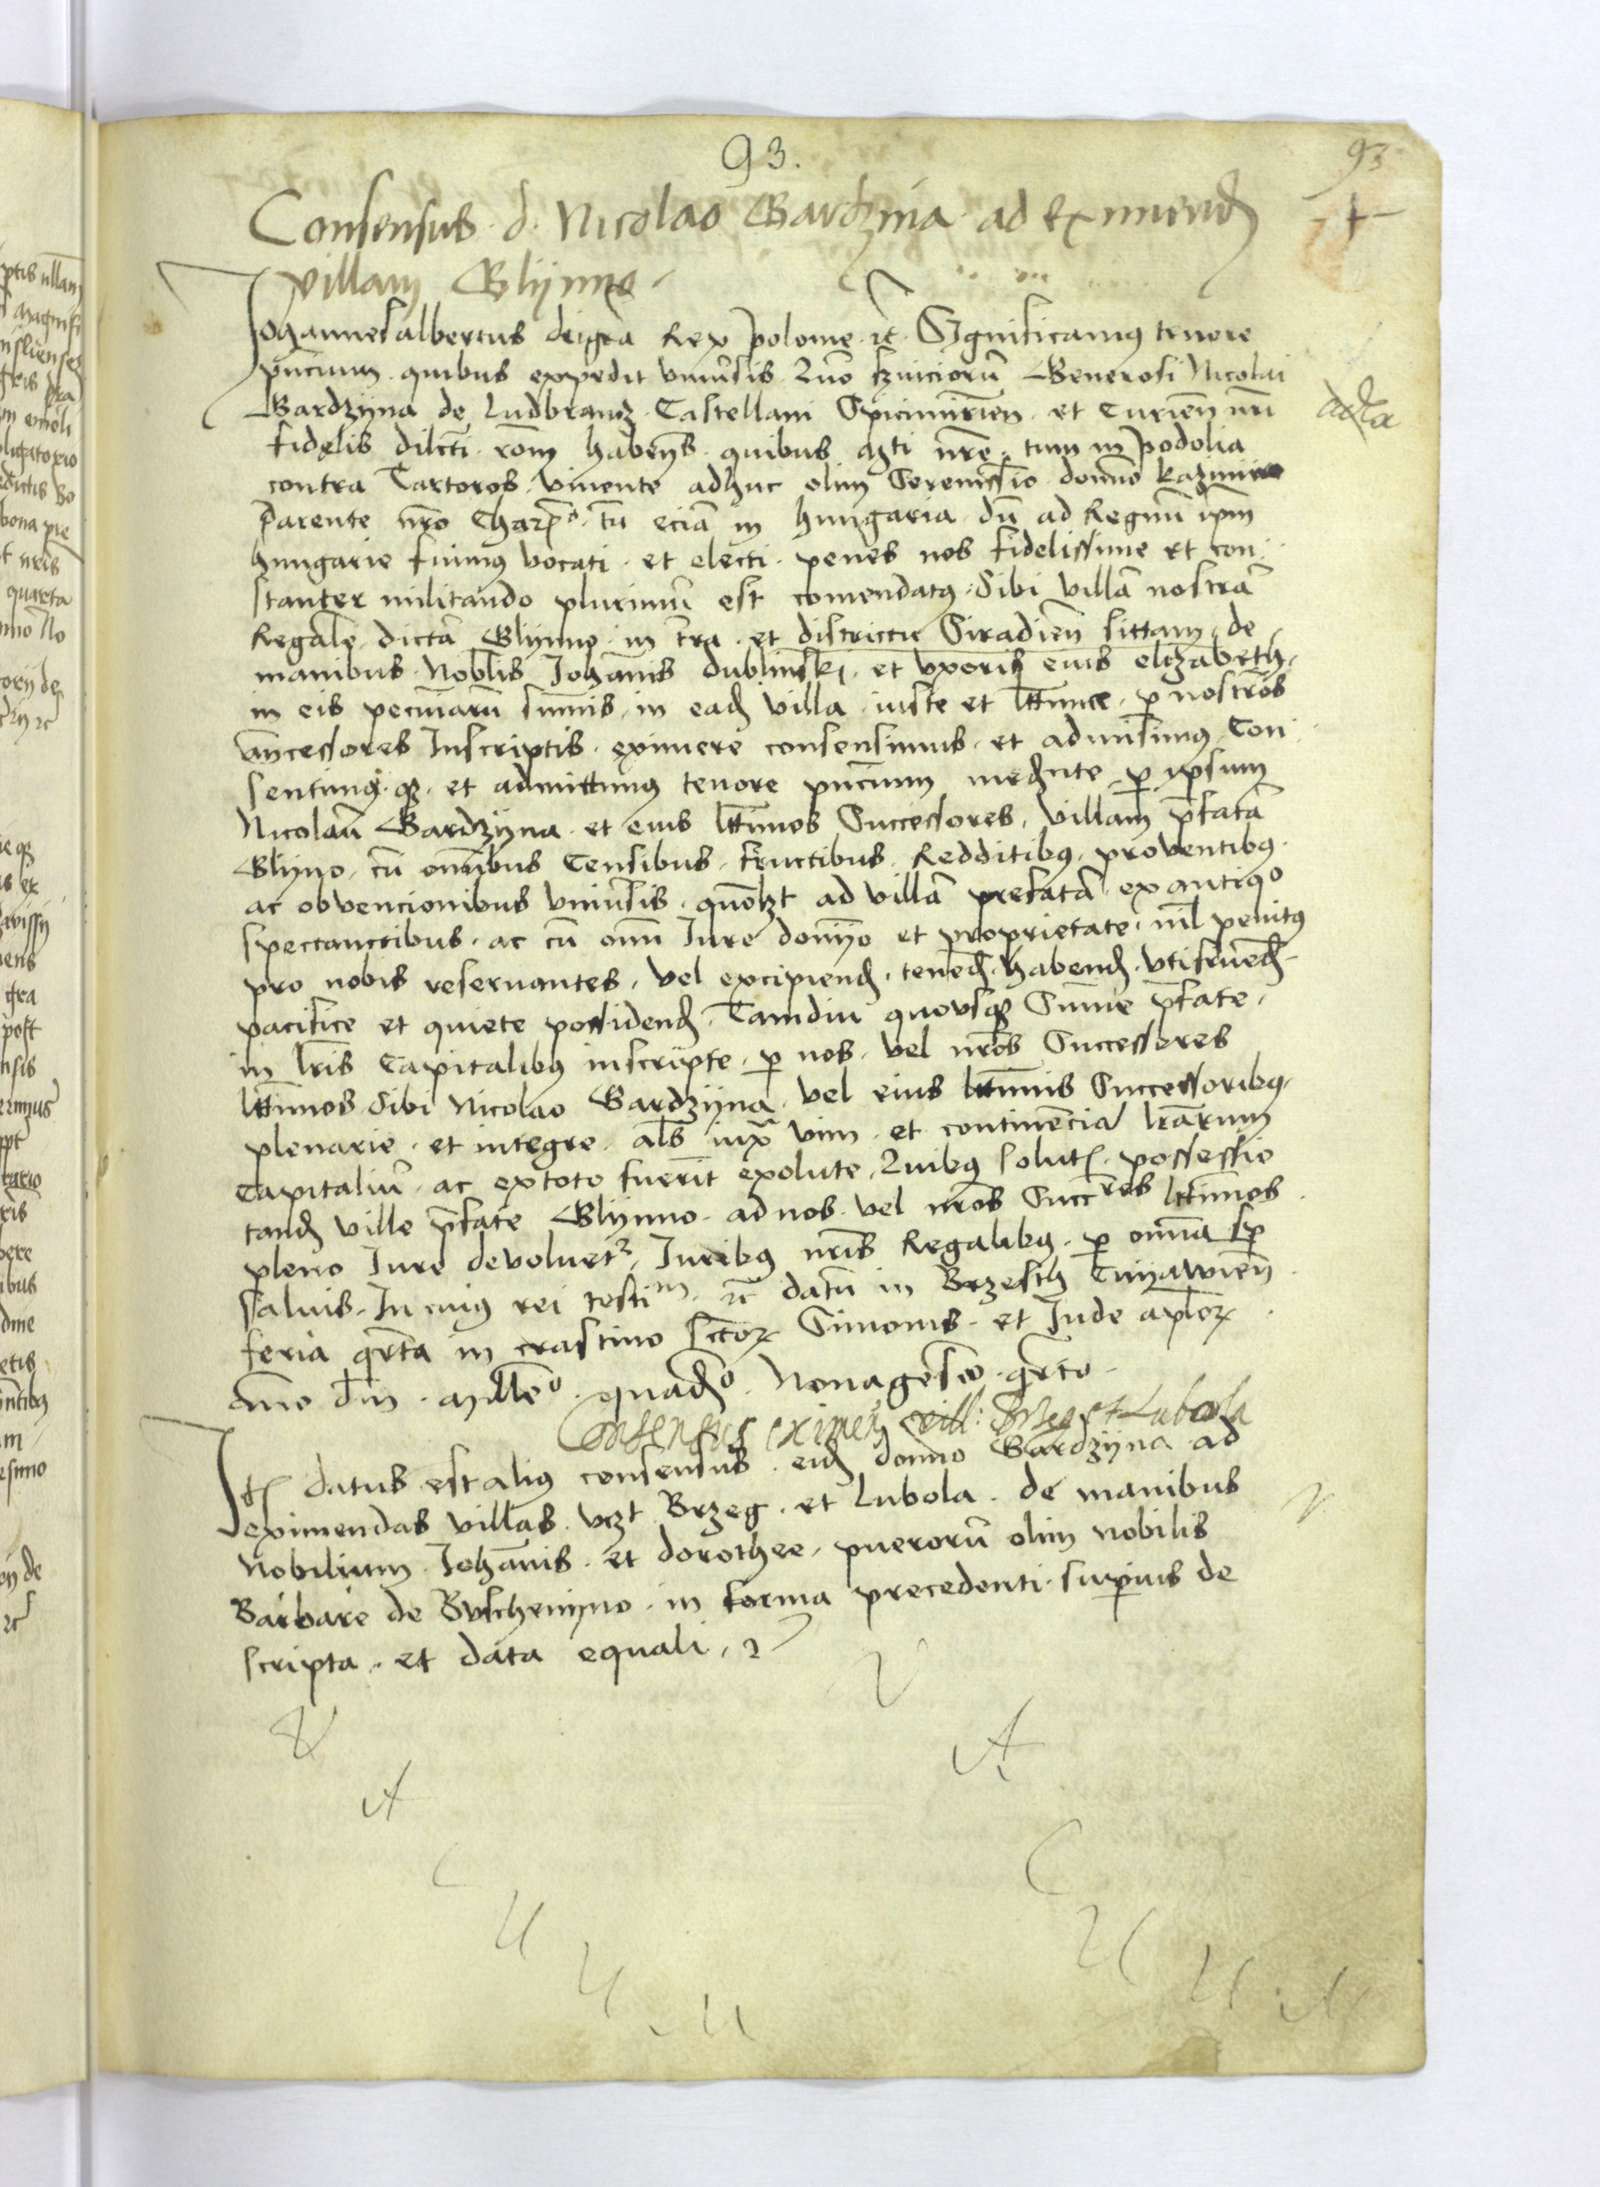 93.
93
Consensus d. Nicolao Bardzina ad eximend
villam Glijnno
Johannesalbertus deigra Rex polonie rc Significamus tenore
pncium quibus expedit vniuersis Quō serviciorū Generosi Nicolai
Bardzijna de Ludbrancz Castellani Spicimirien et Curien nri
fidelis dilecti rōm habentes quibus mti nre tum in podolia
contra Tartaros viuente adhuc olim Serenissio domno kazimiro
parente nro Charmo tū eciā in hungaria dū ad Regnū ipm
hungarie fuimus vocati et electi penes nos fidelissime et con
stanter militando plurimū est comendatus Sibi villā nostrā
Regalē dictā Glijnno in tra et districtu Siradien sittam de
manibus Noblis Johānis dublinski et vxoris eius elizabeth
in eis pecuniarū sumis in ead villa iuste et lttime p nostros
antcessores Inscriptis eximere consensimus et admisimus Con
sentimus q et admittimus tenore pncium medinte p ipsum
Nicolaū Bardzijna et eius lttimos Successores villam pfatā
Glijno cū omibus Censibus fructibus Redditibus proventibus
ac obvencionibus vniuersis quolzt ad villā prefatā ex antiqo
spectantibus ac cū omi Iure domijo et proprietate nil penitus
pro nobis reseruantes vel excipiend tened habend vtifrued
pacifice et quiete possidend Tamdiu quousq Sume pfate
in lris Capitalibus inscripte p nos vel nros Successores
lttimos Sibi Nicolao Bardzijna vel eius lttimis Successoribus
plenarie et integre als iux vim et continēciā lrarum
Capitaliū ac extoto fuerit exolute Quibus solutis possessio
tand ville pfate Glijnno ad nos vel nros Succres lttimos
pleno Iure devoluetr Iuribus nris Regalibus p omia sp
saluis In cuius rei testim rc datū in Brzesth Cuijawien
feria qrta in crastino sctor Simonis et Jude aplor
Anno dni Milleo quado Nonagesio qrto
Consensus eximen vill: Brzeg et Lubola
Itē datus est alius consensus eid domno Bardzijna ad
eximendas villas vzt Brzeg et Lubola de manibus
Nobilium Johānis et dorothee puerorū olim nobilis
Barbare de Buschenijno in forma precedenti superius de
scripta et data equali